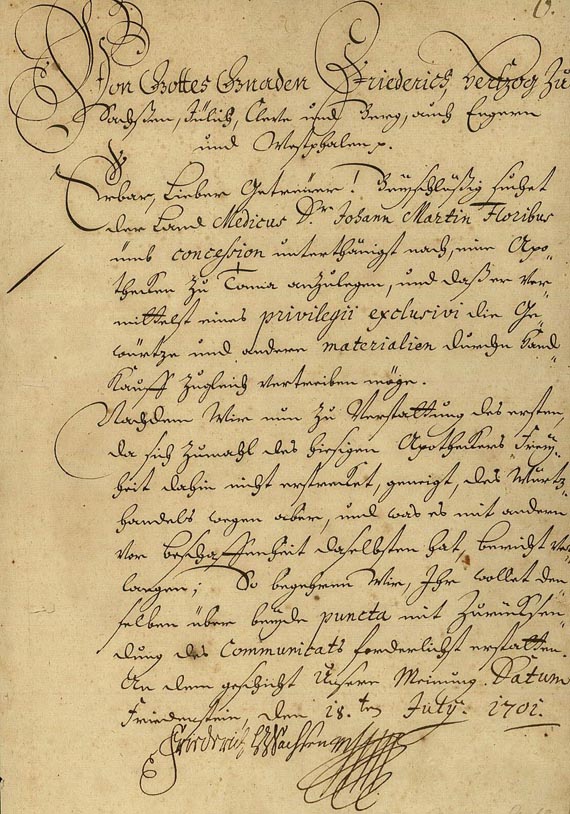 6.
Von Gottes Gnaden Friederich Hertzog Zu
Sachßen, Jülich, Cleve und Berg, auch Engern
und Westphalen p.
Erbar, Lieber Getreuer! Beyschlüßig suchet
der Land Medicus Dr. Johann Martin Floribus
ümb concession unterthänigst nach, eine Apo-
thecken zu Tonna anzulegen, und daß er ver-
mittelst eines privilegii exclusivi die Ge-
würtze und andere materialien durchn Hand-
Kauff zugleich vertreiben möge.
Nachdem Wir nun zu Verstattung des ersten,
da sich zumahl des hiesigen Apotheckers Frey-
heit dahin nicht erstrecket, geneigt, des Würtz-
handels wegen aber, und was es mit andern
vor beschaffenheit daselbsten hat, bericht ver-
langen; So begehren Wir, Ihr wollet den
selben über beyde puncta mit Zurücksen-
dung des Communicats forderlichst erstatten.
An dem geschicht Unsere Meinung. Datum
Friedenstein, den 18.ten July. 1701.
Friederich HZSachsen